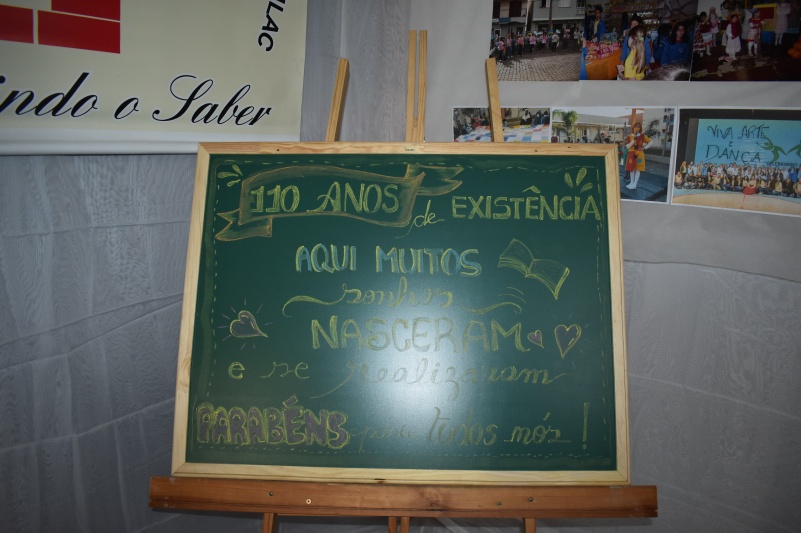 LAC
indo o Saber
VIVA ARTE
E
DANÇA
110 ANOS
de EXISTÊNCIA
AQUI MUITOS
sonhos
NASCERAM
e se realizaram
PARABÉNS para todos nós!